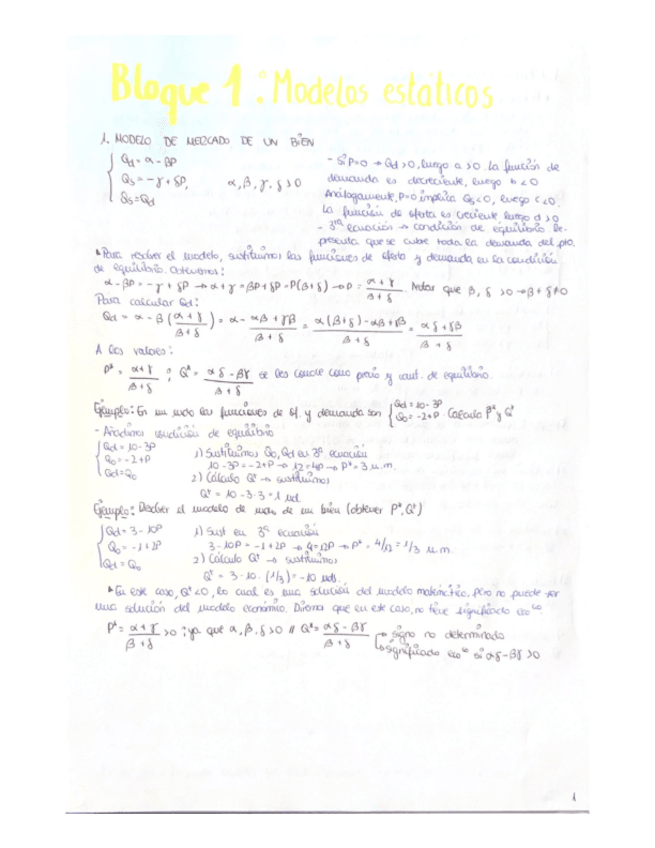 Bloque 1: Modelos estáticos
1. MODELO DE MERCADO DE UN BIEN
Qd = α - βP
Qs = -γ + δP,   α, β, γ, δ > 0
Qs = Qd
- Si P=0 → Qd > 0, luego a > 0. La función de
demanda es decreciente, luego b < 0
Análogamente, P=0 implica Qs < 0, luego c < 0.
La función de oferta es creciente, luego d > 0
- 3ra ecuación → condición de equilibrio. Re-
presenta que se cubre toda la demanda del pto.
Para resolver el modelo, sustituimos las funciones de oferta y demanda en la condición
de equilibrio. Obtenemos:
α - βP = -γ + δP → α + γ = βP + δP = P(β + δ) → P = (α + γ)/(β + δ). Notar que β, δ > 0 → β + δ ≠ 0
Para calcular Qd:
Qd = α - β((α + γ)/(β + δ)) = α - (αβ + γβ)/(β + δ) = (α(β + δ) - αβ + γβ)/(β + δ) = (αδ + γβ)/(β + δ)
A los valores:
P* = (α + γ)/(β + δ) ; Q* = (αδ - βγ)/(β + δ) se les conoce como precio y cant. de equilibrio.
Ejemplo: En un mdo las funciones de of. y demanda son Qd = 10 - 3P
Qo = -2 + P . Calcula P* y Q*
- Añadimos condición de equilibrio
Qd = 10 - 3P
Qo = -2 + P
Qd = Qo
1) Sustituimos Qo, Qd en 3ª ecuación
10 - 3P = -2 + P → 12 = 4P → P* = 3 u.m.
2) Cálculo Q* → sustituimos
Q* = 10 - 3·3 = 1 ud.
Ejemplo: el modelo de mdo. de un bien (obtener P*, Q*)
Qd = 3 - 10P
Qo = -1 + 2P
Qd = Qo
1) Sust en 3ª ecuación
3 - 10P = -1 + 2P → 4 = 12P → P* = 4/12 = 1/3 u.m.
2) Cálculo Q* → sustituimos
Q* = 3 - 10·(1/3) = -10 uds.
En este caso, Q* < 0, lo cual es una solución del modelo matemático, pero no puede ser
una solución del modelo económico. Diremos que en este caso, no tiene significado eco^co
P* = (α + γ)/(β + δ) > 0 ; ya que α, β, δ > 0 // Q* = (αδ - βγ)/(β + δ) signo no determinado
significado eco^co si αδ - βγ > 0
1